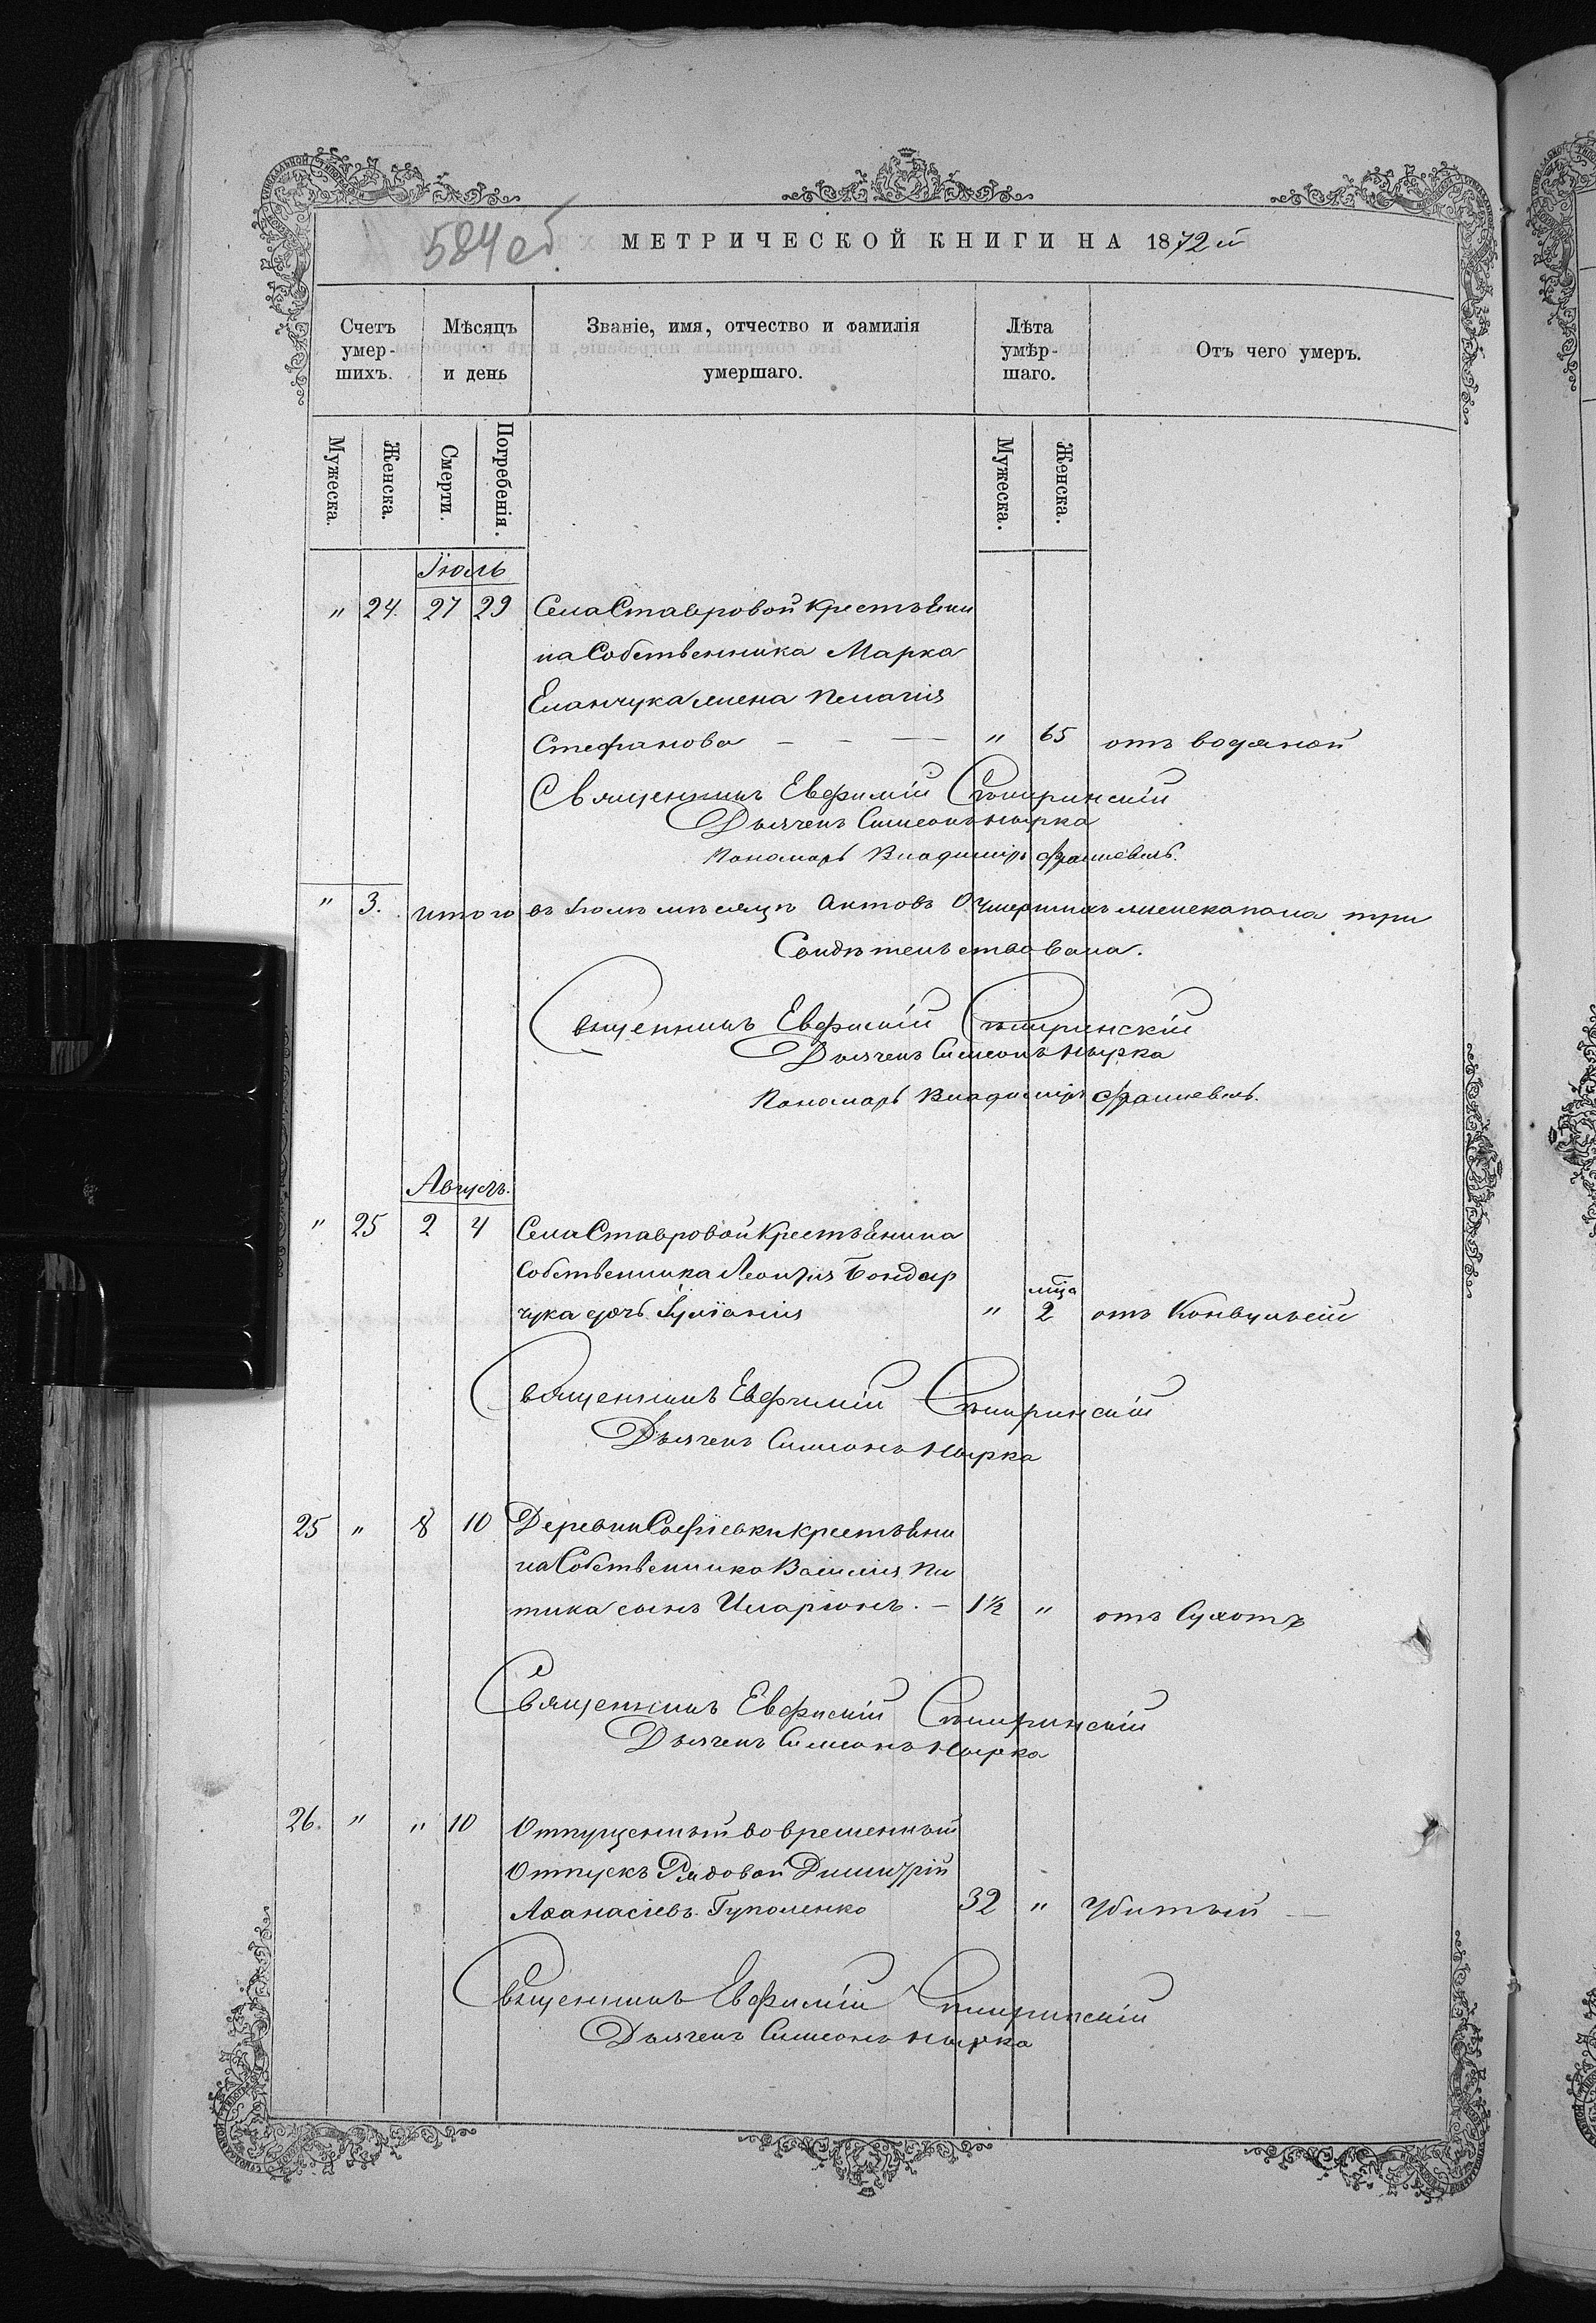 584 об
МЕТРИЧЕСКОЙ КНИГИ НА 1872й
Счетъ умер-шихъ.
Мѣсяцъ и день
Званіе, имя, отчество и фамилія умершаго.
Лѣта умѣр-шаго.
Отъ чего умеръ.
Мужеска. Женска. Смерти. Погребенія. Мужеска. Женска.
Іюль
" 24. 27 29 Села Ставровой крестьяни
на Собственника Марка
Еланчука жена Пелагія
Стефанова — — — " 65 отъ водяной
Священникъ Евфимій
Дьячекъ Симеонъ Нырка
Пономарь Владимиръ
" 3. Итого въ Іюлѣ мѣсяцѣ актовъ О умершихъ женска пола три
Свидѣтельствовали.
Священникъ Евфимій
Дьячекъ Симеонъ Нырка
Пономарь Владимиръ
Августъ.
" 25 2 4 Села Ставровой Крестьянина
Собственника Леонтія Бондар
мца
чука дочь Іуліанія " 2 отъ Конвульсій
Священникъ Евфимій
Дьячекъ Симеонъ Нырка
25 " 8 10 Деревни Софіевки крестьяни
на Собственника Василія Пи
тика сынъ Иларіонъ. — 1½ " отъ Сухотъ
Священникъ Евфимій
Дьячекъ Симеонъ Нырка
26. " " 10 Отпущенный во временный
Отпускъ Рядовой Димитрій
Аѳанасіевъ Гуполенко 32 " Убитый —
Священникъ Евфимій
Дьячекъ Симеонъ Нырка